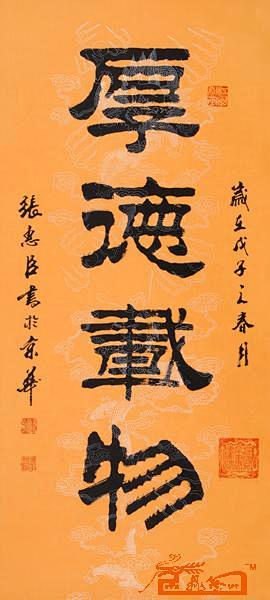 歲在戊子之春月
厚德載物
張惠臣書於京華